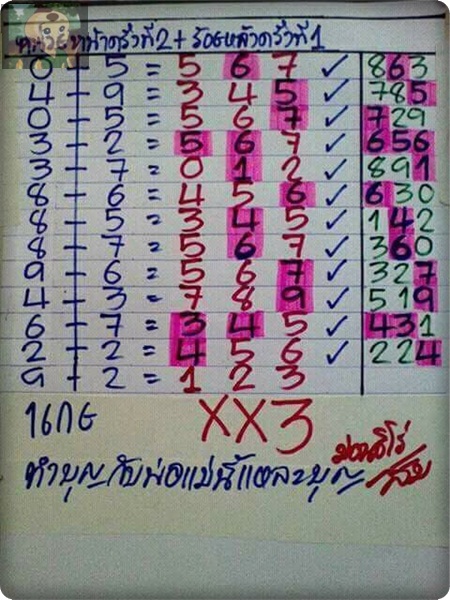 หน่วยหน้าครั้งที่2+ร้อยหลังครั้งที่1
0 + 5 = 5 6 7 ✓ 863
4 + 9 = 3 4 5 ✓ 785
0 + 5 = 5 6 7 ✓ 729
3 + 2 = 5 6 7 ✓ 656
3 + 7 = 0 1 2 ✓ 891
8 + 6 = 4 5 6 ✓ 630
8 + 5 = 3 4 5 ✓ 142
8 + 7 = 5 6 7 ✓ 360
9 + 6 = 5 6 7 ✓ 327
4 + 3 = 7 8 9 ✓ 519
6 + 7 = 3 4 5 ✓ 431
2 + 2 = 4 5 6 ✓ 224
9 + 2 = 1 2 3
XX3
ทำบุญกับพ่อแม่นี้แหละบุญ